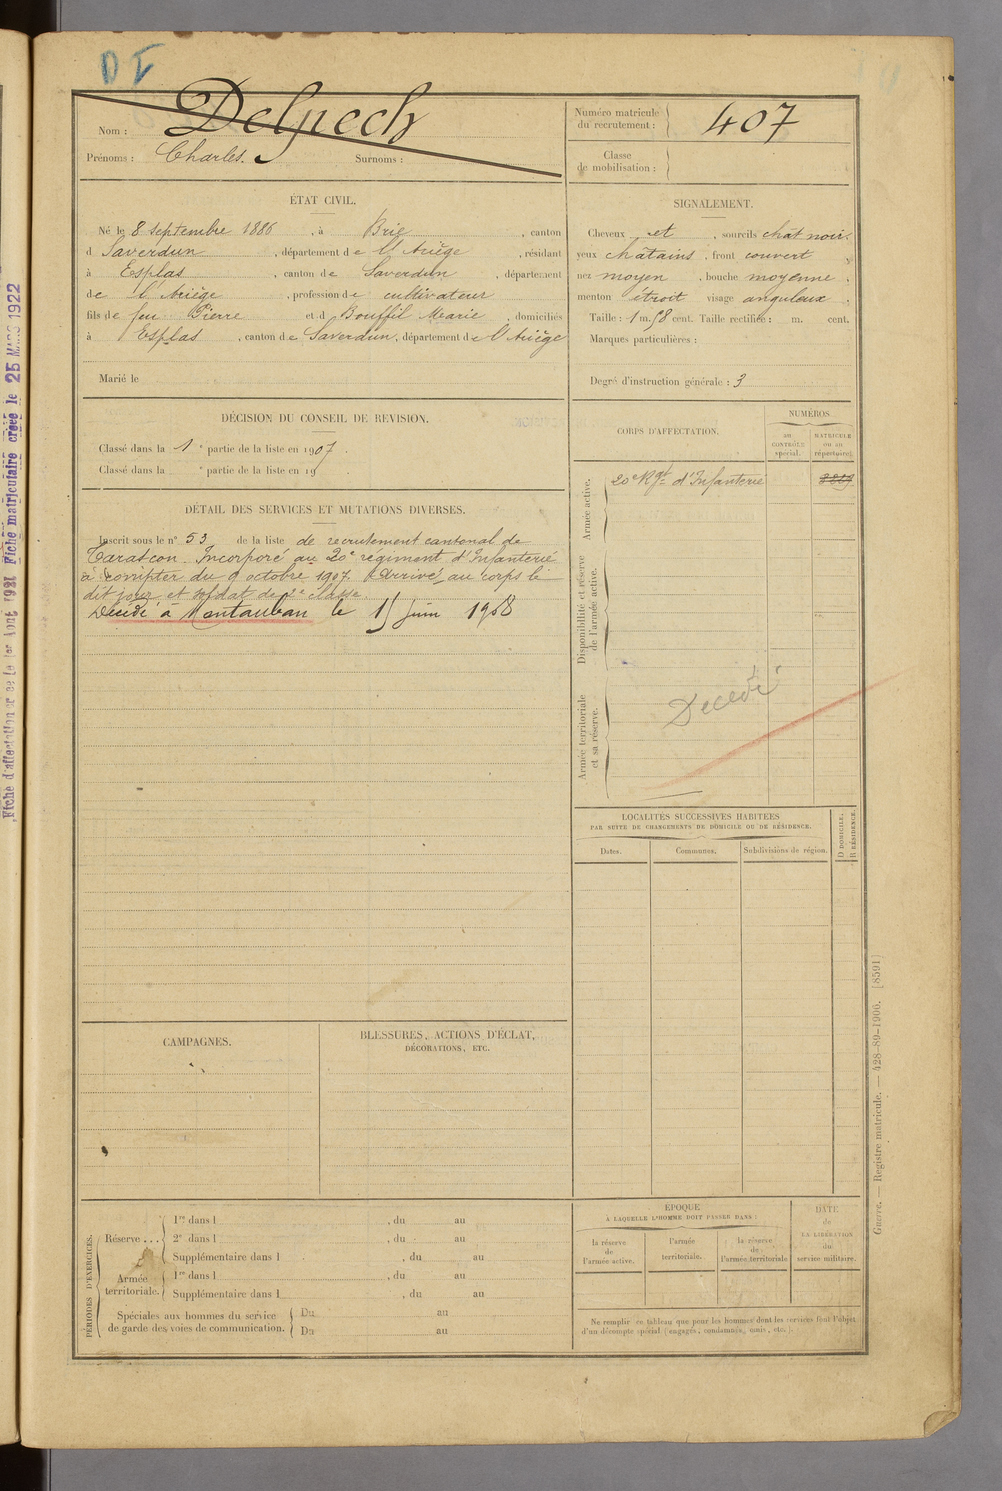 DI
Nom : Delpech
Prénoms : Charles. Surnoms :
Numéro matricule du recrutement : 407
Classe de mobilisation :
ÉTAT CIVIL.
Né le 8 septembre 1886, à Brie, canton
d Saverdun, département de l'Ariège, résidant
à Esplas, canton de Saverdun, département
de l'Ariège, profession de cultivateur
fils de feu Pierre et d Bouffil Marie, domiciliés
à Esplas, canton de Saverdun, département de l'Ariège
Marié le
SIGNALEMENT.
Cheveux et, sourcils chât noir.
yeux châtains, front couvert,
nez moyen, bouche moyenne,
menton étroit visage anguleux.
Taille : 1 m. 58 cent. Taille rectifiée : m. cent.
Marques particulières :
Degré d'instruction générale : 3
DÉCISION DU CONSEIL DE REVISION.
Classé dans la 1e partie de la liste en 1907.
Classé dans la e partie de la liste en 19
DÉTAIL DES SERVICES ET MUTATIONS DIVERSES.
Inscrit sous le n° 53 de la liste de recrutement cantonal de
Tarascon. Incorporé au 20e régiment d'Infanterie
à compter du 9 octobre 1907. Arrivé au corps le
dit jour et soldat de 2e classe.
Décédé à Montauban le 15 juin 1908
CORPS D'AFFECTATION.
NUMÉROS
au contrôle spécial.
matricule ou au répertoire.
Armée active.
20e Rgt d'Infanterie
Disponibilité et réserve de l'armée active.
Armée territoriale et sa réserve.
Décédé
LOCALITÉS SUCCESSIVES HABITÉES
PAR SUITE DE CHANGEMENTS DE DOMICILE OU DE RÉSIDENCE.
Dates. Communes. Subdivisions de région.
D DOMICILE.
R RÉSIDENCE.
CAMPAGNES.
BLESSURES, ACTIONS D'ÉCLAT,
DÉCORATIONS, ETC.
PÉRIODES D'EXERCICES.
Réserve ...
1re dans l , du au
2e dans l , du au
Supplémentaire dans l , du au
Armée territoriale.
1re dans l , du au
Supplémentaire dans l , du au
Spéciales aux hommes du service
de garde des voies de communication.
Du au
Du au
ÉPOQUE
À LAQUELLE L'HOMME DOIT PASSER DANS :
la réserve de l'armée active.
l'armée territoriale.
la réserve de l'armée territoriale
DATE de LA LIBÉRATION du service militaire.
Ne remplir ce tableau que pour les hommes dont les services font l'objet
d'un décompte spécial (engagés, condamnés, omis, etc.).
Guerre. — Registre matricule. — 428-89-1906. [8591]
Fiche matriculaire créée le 25 MARS 1922